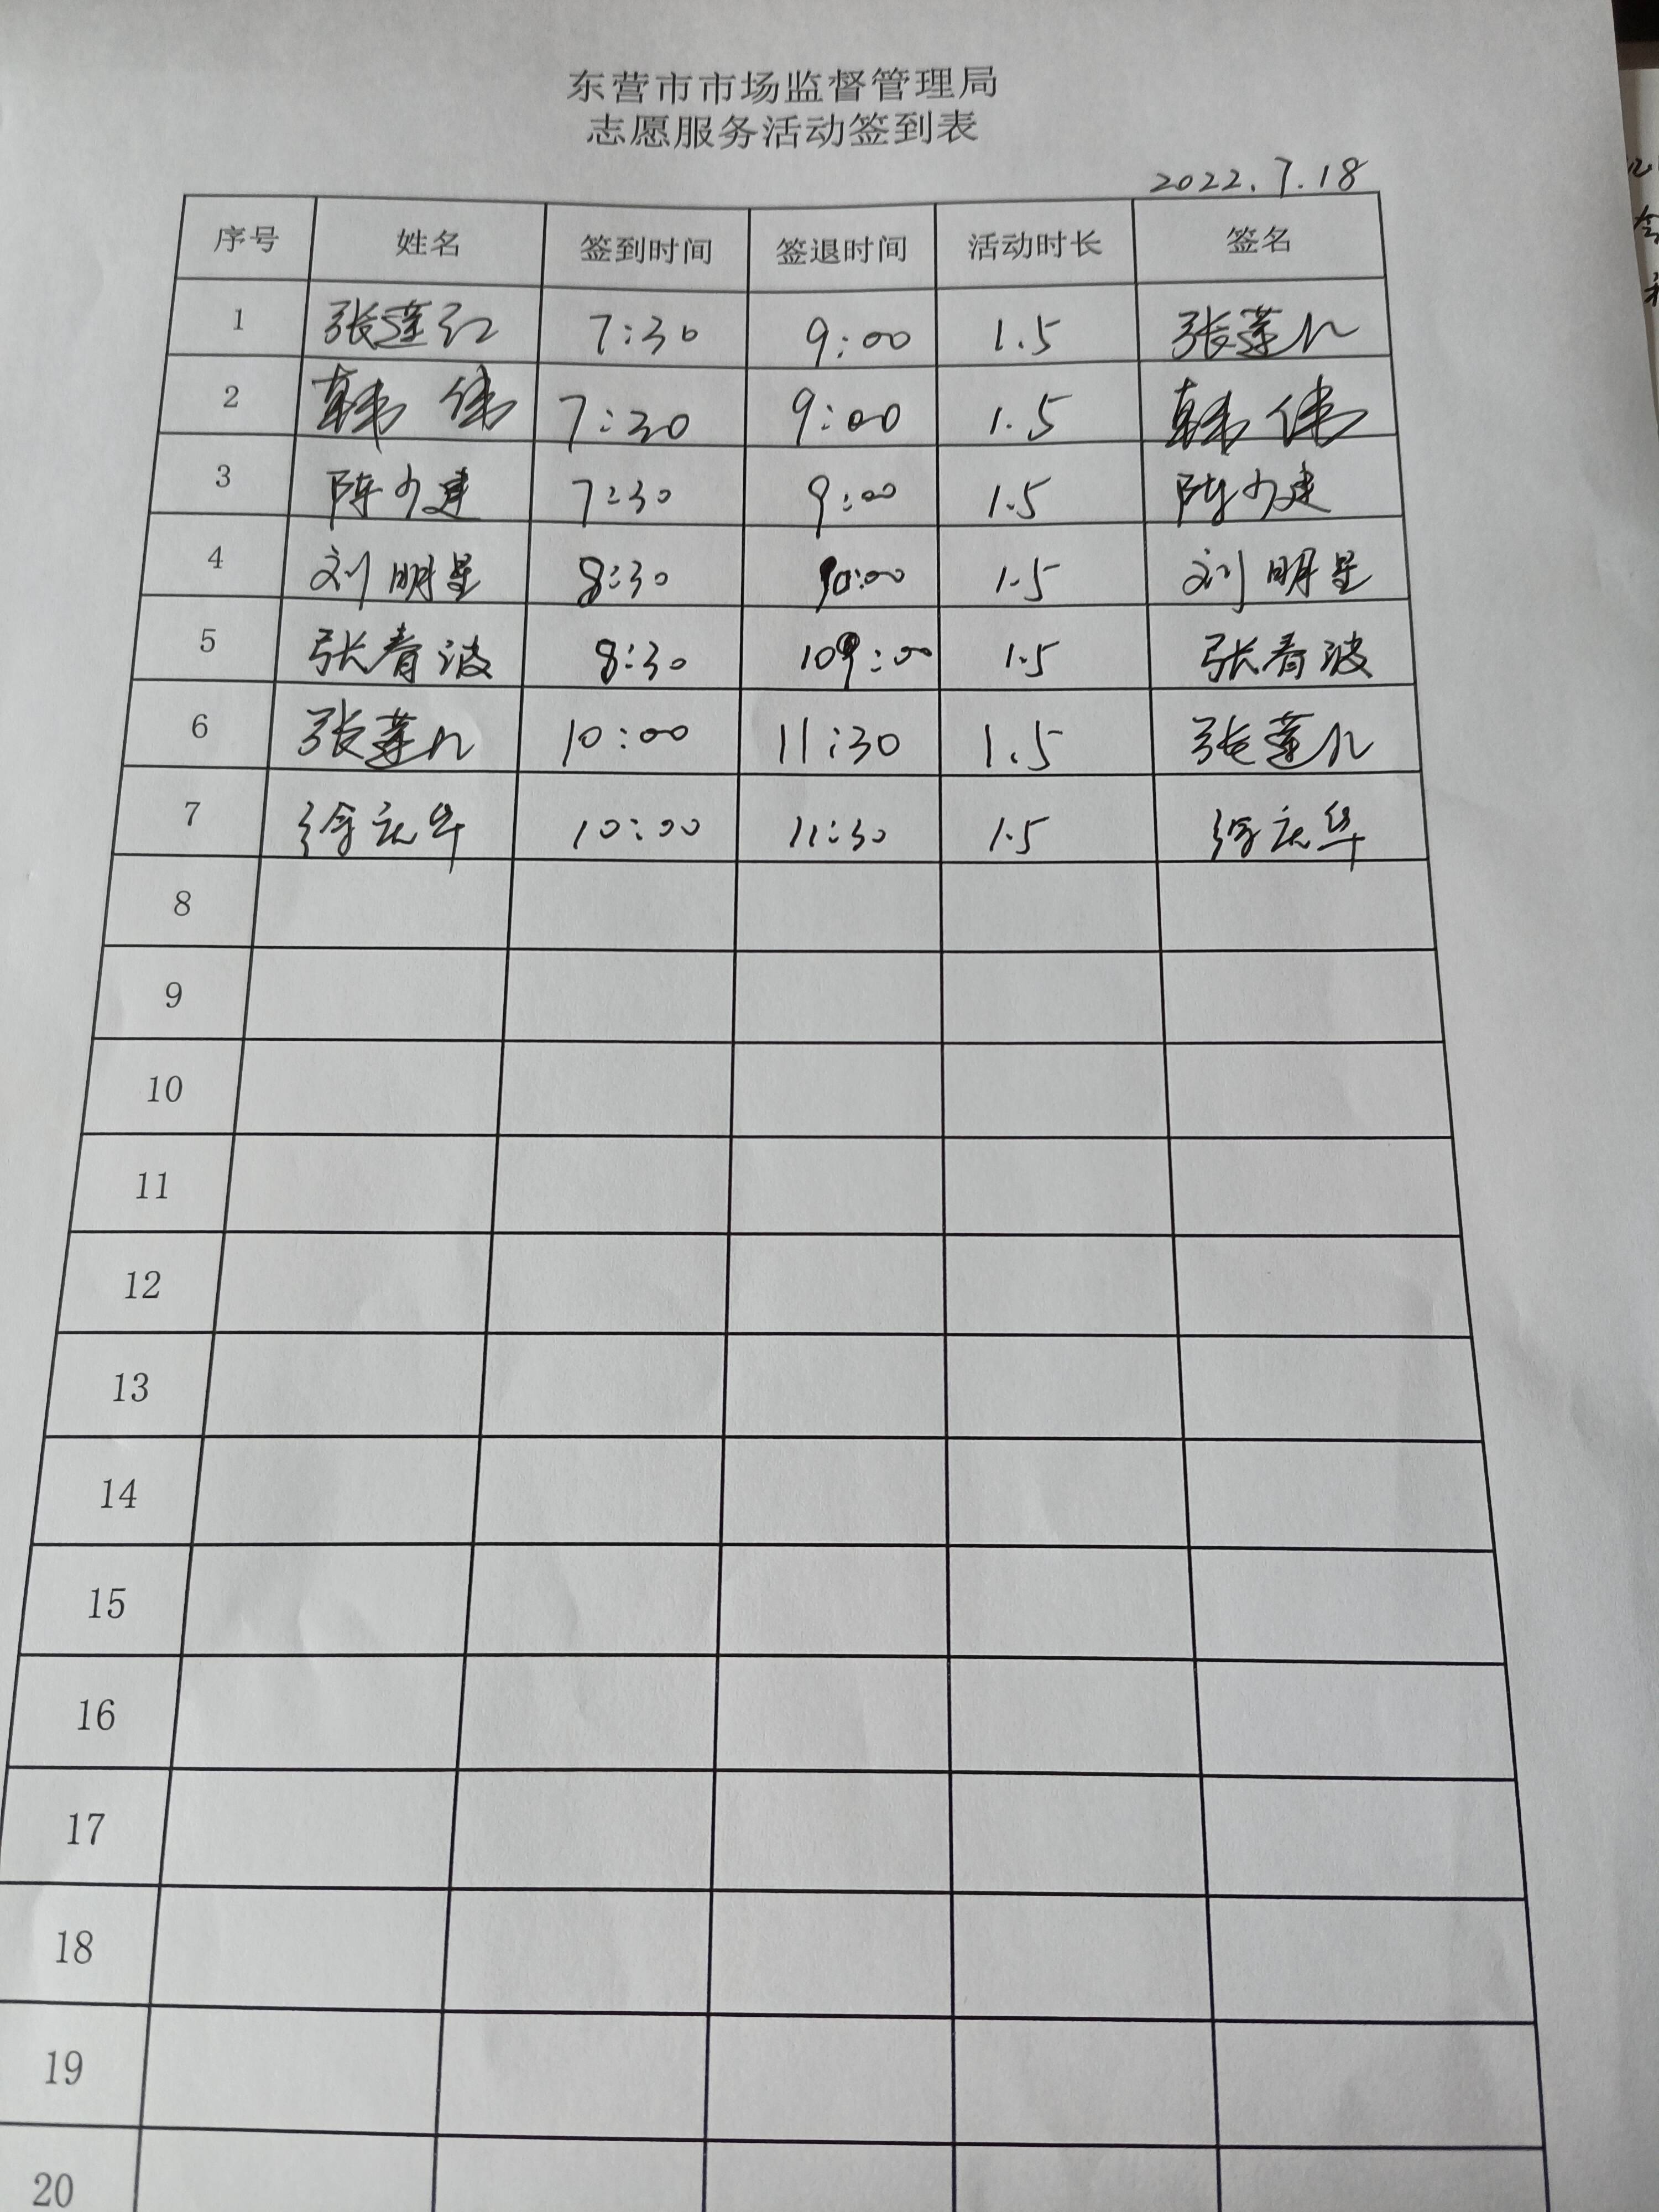 东营市市场监督管理局
志愿服务活动签到表
2022.7.18
序号 姓名 签到时间 签退时间 活动时长 签名
1 张莲红 7:30 9:00 1.5 张莲红
2 韩伟 7:30 9:00 1.5 韩伟
3 陈少建 7:30 9:00 1.5 陈少建
4 刘明星 8:30 10:00 1.5 刘明星
5 张春波 8:30 10:00 1.5 张春波
6 张莲红 10:00 11:30 1.5 张莲红
7 徐庆华 10:00 11:30 1.5 徐庆华
8
9
10
11
12
13
14
15
16
17
18
19
20